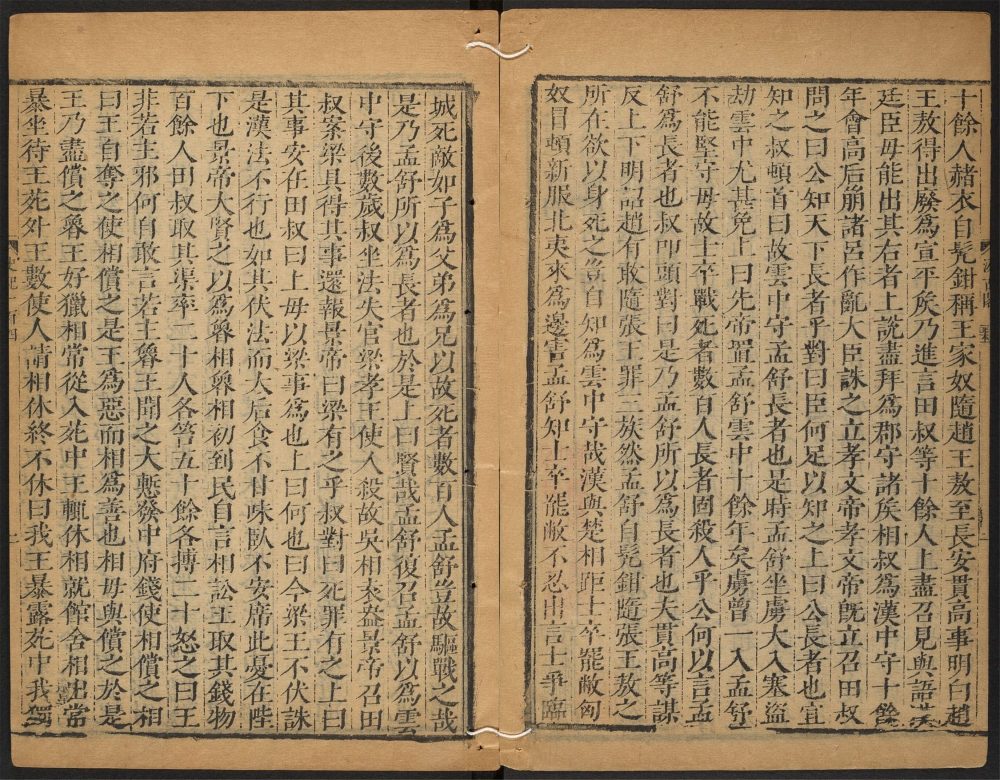 十餘人赭衣自髡鉗稱王家奴隨趙王敖至長安貫高事明白趙
王敖得出廢為宣平矦乃進言田叔等十餘人上盡召見與語漢
廷臣毋能出其右者上說盡拜爲郡守諸矦相叔爲漢中守十餘
年會高后崩諸呂作亂大臣誅之立孝文帝孝文帝旣立召田叔
問之曰公知天下長者乎對曰臣何足以知之上曰公長者也宜
知之叔頓首曰故雲中守孟舒長者也是時孟舒坐虜大入塞盜
劫雲中尤甚免上曰先帝置孟舒雲中十餘年矣虜曾一入孟舒
不能堅守毋故士卒戰死者數百人長者固殺人乎公何以言孟
舒爲長者也叔叩頭對曰是乃孟舒所以爲長者也夫貫高等謀
反上下明詔趙有敢隨張王罪三族然孟舒自髡鉗隨張王敖之
所在欲以身死之豈自知爲雲中守哉漢與楚相距士卒罷敝匈
奴冒頓新服北夷來爲邊害孟舒知士卒罷敝不忍出言士爭臨
城死敵如子爲父弟爲兄以故死者數百人孟舒豈故驅戰之哉
是乃孟舒所以爲長者也於是上曰賢哉孟舒復召孟舒以爲雲
中守後數歲叔坐法失官梁孝王使人殺故吳相袁盎景帝召田
叔案梁具得其事還報景帝曰梁有之乎叔對曰死罪有之上曰
其事安在田叔曰上毋以梁事爲也上曰何也曰今梁王不伏誅
是漢法不行也如其伏法而太后食不甘味臥不安席此憂在陛
下也景帝大賢之以爲魯相魯相初到民自言相訟王取其錢物
百餘人田叔取其渠率二十人各笞五十餘各搏二十怒之曰王
非若主邪何自敢言若主魯王聞之大慙發中府錢使相償之相
曰王自奪之使相償之是王爲惡而相爲善也相毋與償之於是
王乃盡償之魯王好獵相常從入苑中王輒休相就館舍相出常
暴坐待王苑外王數使人請相休終不休曰我王暴露苑中我獨